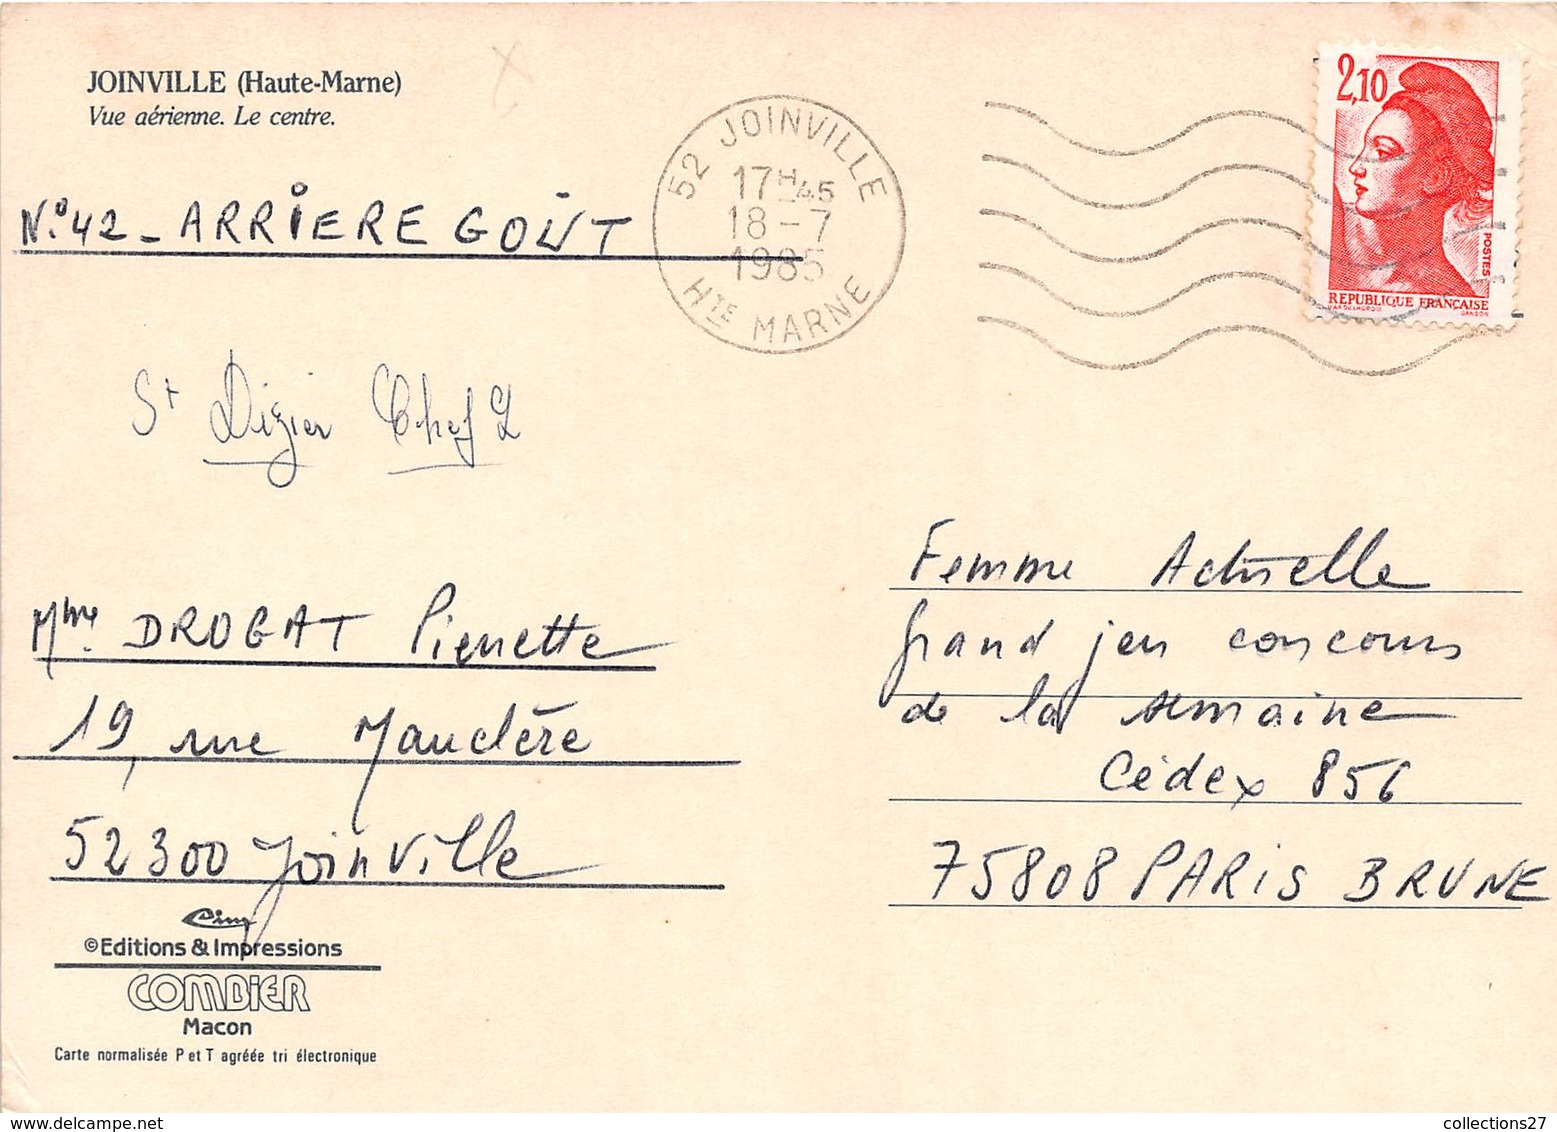 JOINVILLE (Haute-Marne)
Vue aérienne. Le centre.
N° 42 - ARRIERE GOÛT
52 JOINVILLE
17H45
18-7
1985
HTE MARNE
2,10
POSTES
REPUBLIQUE FRANÇAISE
GANDON
St Dizier Chef L
Femme Actuelle
grand jeu concours
de la semaine
Cédex 856
75808 PARIS BRUNE
Mme DROGAT Pierrette
19, rue Mauclère
52300 Joinville
Cim
©Editions & Impressions
COMBIER
Macon
Carte normalisée P et T agréée tri électronique
collections27